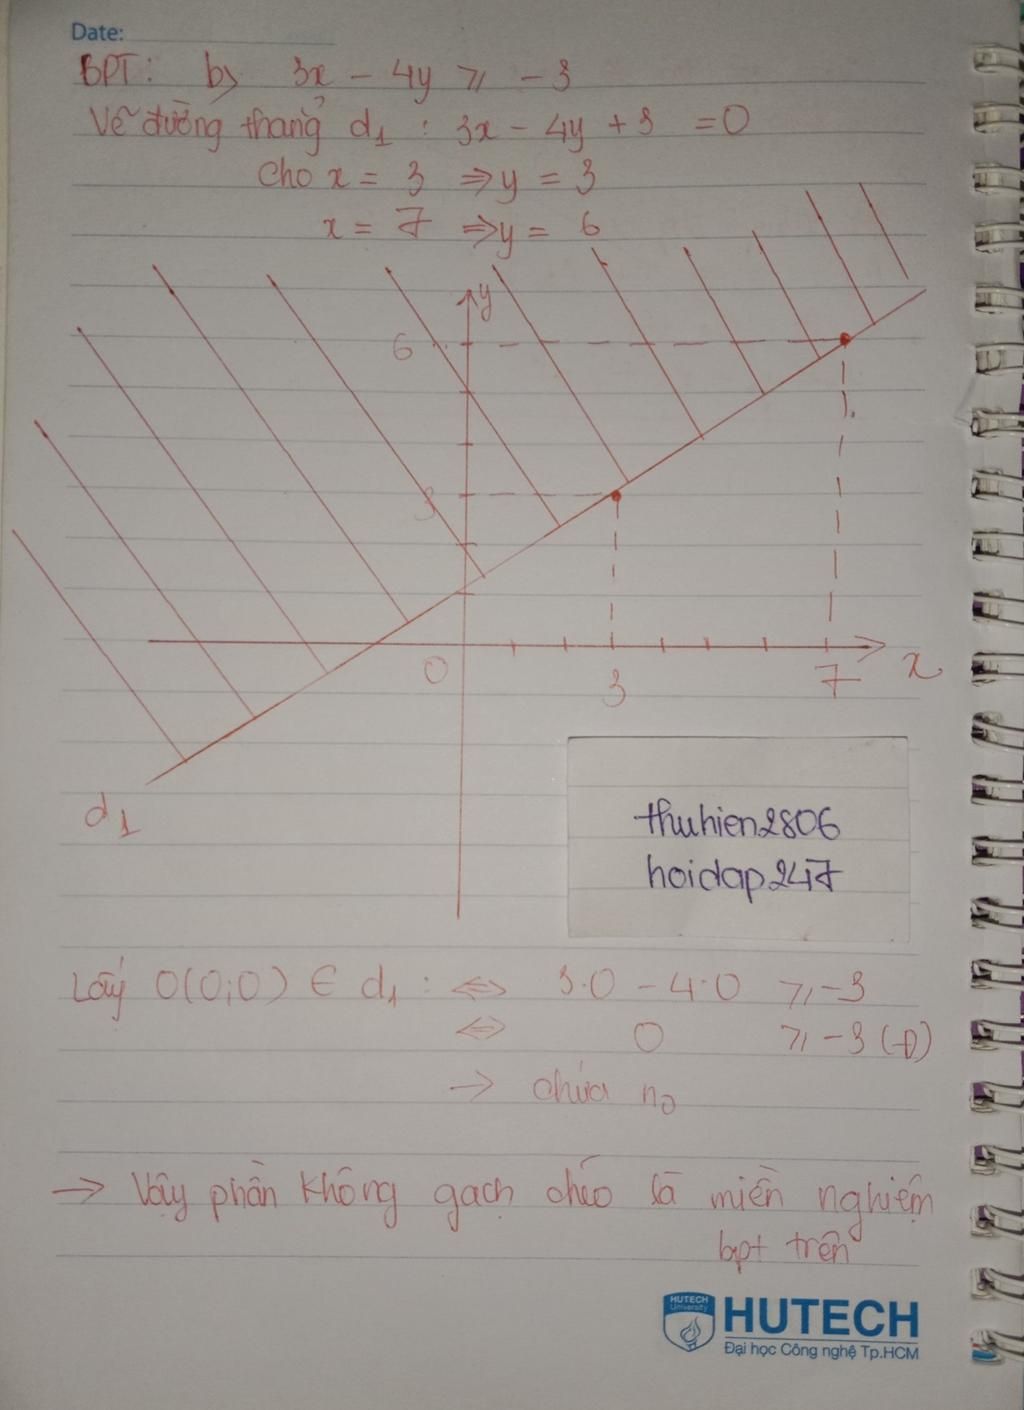 Date:
BPT: b) 3x - 4y ⩾ -3
Vẽ đường thẳng d₁ : 3x - 4y + 3 = 0
Cho x = 3 ⇒ y = 3
x = 7 ⇒ y = 6
y
6
3
0
3
7
x
d₁
thuhien2806
hoidap247
Lấy O(0;0) ∈ d₁ : ⇔ 3.0 - 4.0 ⩾ -3
⇔ 0 ⩾ -3 (Đ)
→ chứa n₀
→ Vậy phần không gạch chéo là miền nghiệm
bpt trên
HUTECH
University
HUTECH
Đại học Công nghệ Tp.HCM